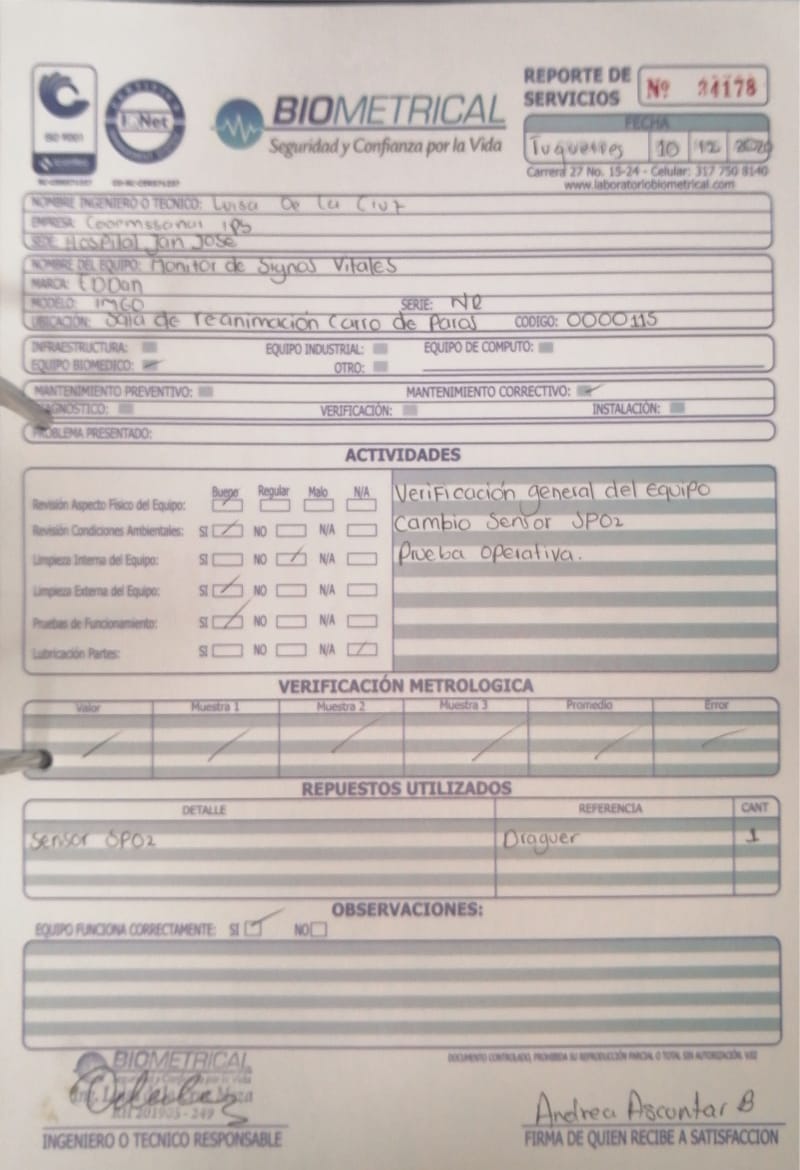 ISO 9001
CERTIFIED
IQNet
MANAGEMENT SYSTEM
BIOMETRICAL
Seguridad y Confianza por la Vida
REPORTE DE SERVICIOS
Nº 24178
FECHA
Tuquerres 10 12 2020
Carrera 27 No. 15-24 - Celular: 317 750 8140
www.laboratoriobiometrical.com
NOMBRE INGENIERO O TECNICO: Luisa De La Cruz
EMPRESA: Coemssanar IPS
SEDE: Hospital San Jose
NOMBRE DEL EQUIPO: Monitor de Signos Vitales
MARCA: EDDan
MODELO: IM60 SERIE: NR
UBICACIÓN: Sala de reanimación Carro de Paros CODIGO: 0000115
INFRAESTRUCTURA: EQUIPO INDUSTRIAL: EQUIPO DE COMPUTO:
EQUIPO BIOMEDICO: OTRO:
MANTENIMIENTO PREVENTIVO: MANTENIMIENTO CORRECTIVO:
DIAGNOSTICO: VERIFICACIÓN: INSTALACIÓN:
PROBLEMA PRESENTADO:
ACTIVIDADES
Bueno Regular Malo N/A
Revisión Aspecto Físico del Equipo:
Revisión Condiciones Ambientales: SI NO N/A
Limpieza Interna del Equipo: SI NO N/A
Limpieza Externa del Equipo: SI NO N/A
Pruebas de Funcionamiento: SI NO N/A
Lubricación Partes: SI NO N/A
Verificación general del equipo
Cambio Sensor SPO2
Prueba Operativa.
VERIFICACIÓN METROLOGICA
Valor Muestra 1 Muestra 2 Muestra 3 Promedio Error
REPUESTOS UTILIZADOS
DETALLE REFERENCIA CANT
Sensor SPO2 Draguer 1
OBSERVACIONES:
EQUIPO FUNCIONA CORRECTAMENTE: SI NO
DOCUMENTO CONTROLADO, PROHIBIDA SU REPRODUCCIÓN PARCIAL O TOTAL SIN AUTORIZACIÓN. V.02
BIOMETRICAL
Seguridad y Confianza por la Vida
Andrea Ascontar B
INGENIERO O TECNICO RESPONSABLE
FIRMA DE QUIEN RECIBE A SATISFACCION